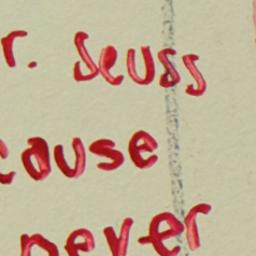 r. Seuss
cause
never